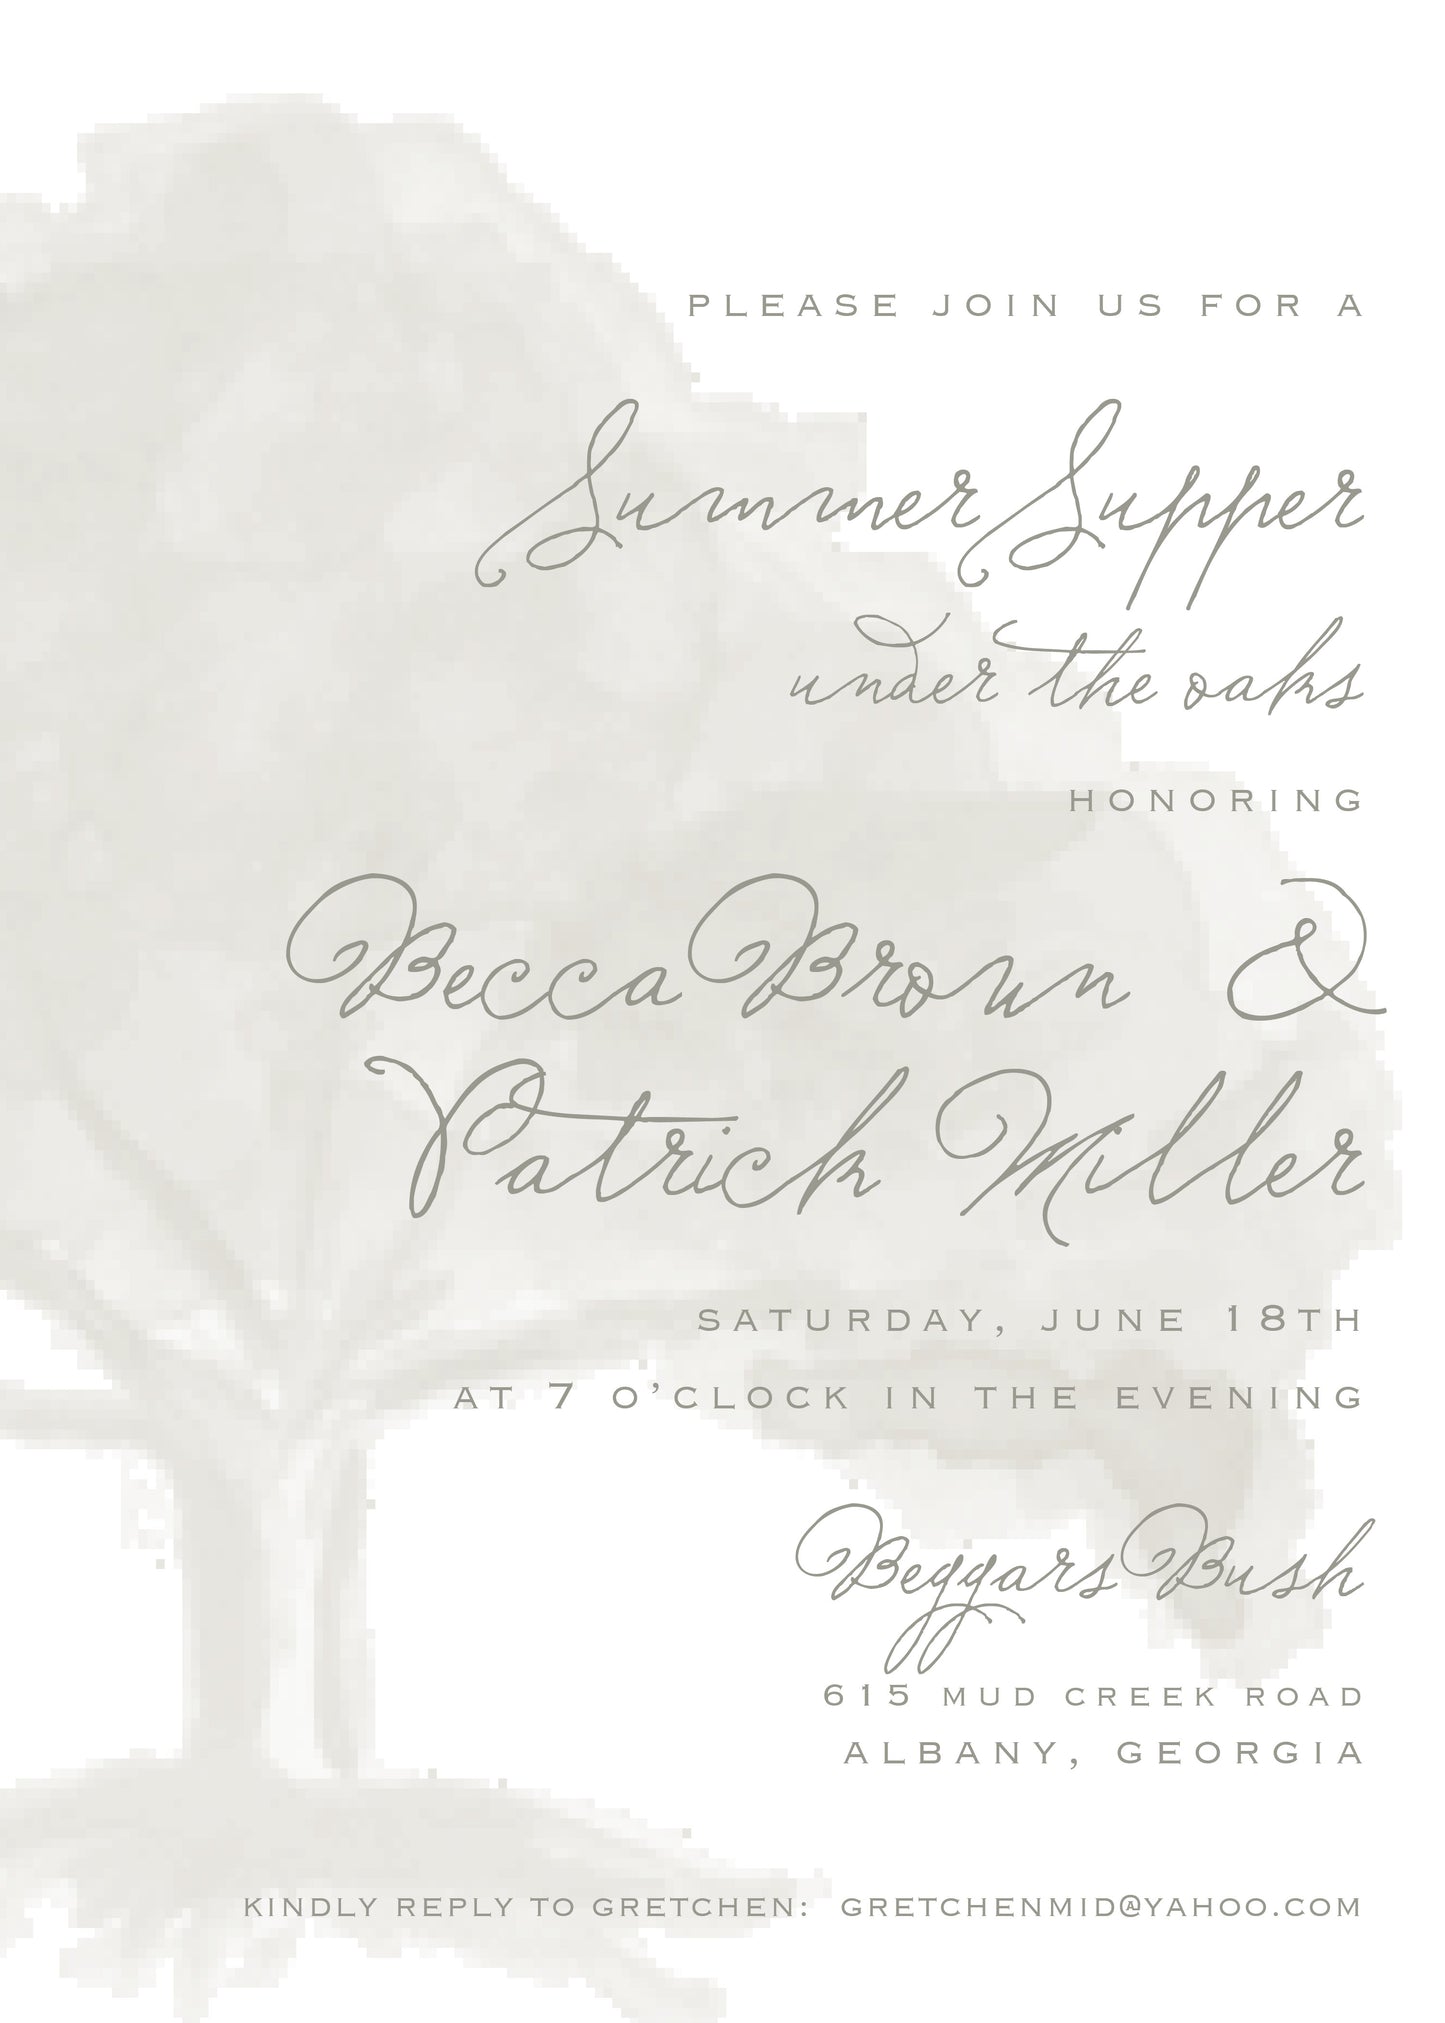 PLEASE JOIN US FOR A
Summer Supper
under the oaks
HONORING
Becca Brown &
Patrick Miller
SATURDAY, JUNE 18TH
AT 7 O'CLOCK IN THE EVENING
Beggars Bush
615 MUD CREEK ROAD
ALBANY, GEORGIA
KINDLY REPLY TO GRETCHEN: GRETCHENMID@YAHOO.COM